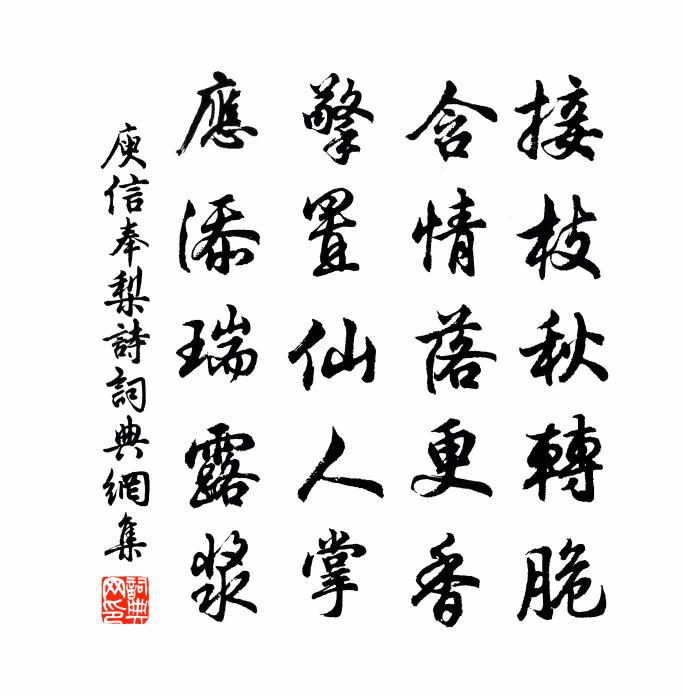 接枝秋轉脆
含情落更香
擎置仙人掌
應添瑞露漿
庾信奉梨詩詞典網集
詞典網印